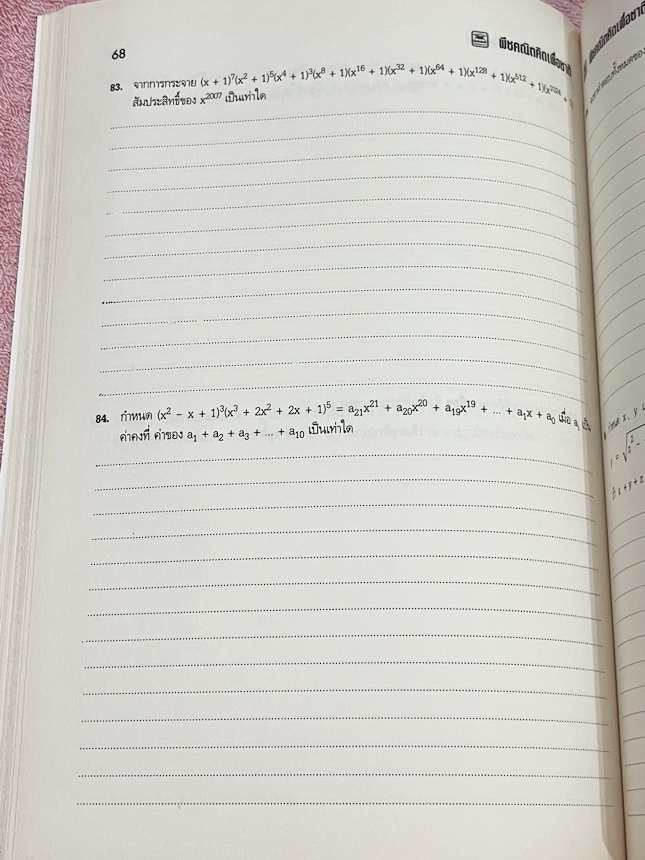 68
พีชคณิตคิดเพื่อชาติ
83. จากการกระจาย (x + 1)⁷(x² + 1)⁵(x⁴ + 1)³(x⁸ + 1)(x¹⁶ + 1)(x³² + 1)(x⁶⁴ + 1)(x¹²⁸ + 1)(x⁵¹² + 1)(x¹⁰²⁴ +
สัมประสิทธิ์ของ x²⁰⁰⁷ เป็นเท่าใด
84. กำหนด (x² - x + 1)³(x³ + 2x² + 2x + 1)⁵ = a₂₁x²¹ + a₂₀x²⁰ + a₁₉x¹⁹ + ... + a₁x + a₀ เมื่อ aᵢ เป็น
ค่าคงที่ ค่าของ a₁ + a₂ + a₃ + ... + a₁₀ เป็นเท่าใด
พีชคณิตคิดเพื่อชาติ
กำหนด x, y
y =
x + y + z